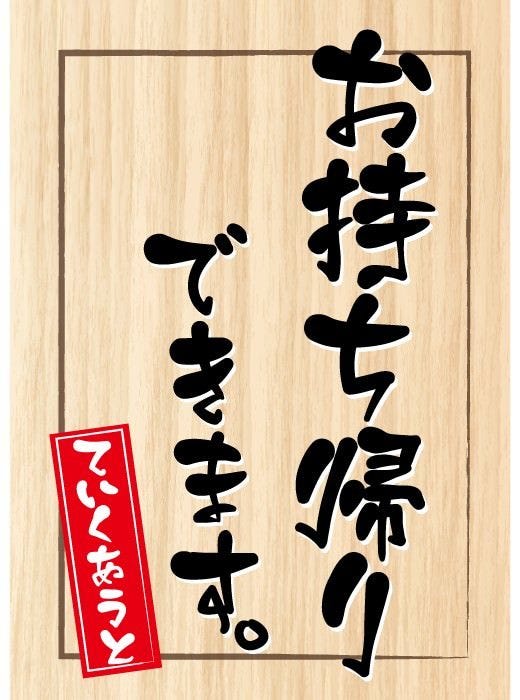 お持ち帰り
できます。
ていくあうと